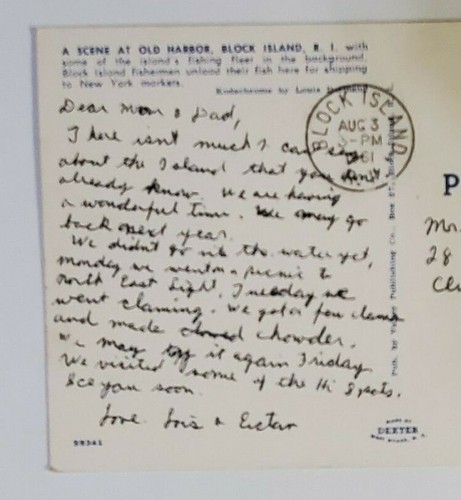 A SCENE AT OLD HARBOR, BLOCK ISLAND, R. I. with
some of the island's fishing fleet in the background.
Block Island fishermen unload their fish here for shipping
to New York markets.
Kodachrome by Louis
BLOCK ISLAND
AUG 3
PM
1961
R.I.
Dear Mom & Dad,
There isn't much I can say
about the Island that you don't
already know. We are having
a wonderful time. We may go
back next year.
We didn't go in the water yet,
Monday we went on a picnic to
North East Light. Tuesday we
went claming. We got a few clams
and made chowder.
We may try it again Friday
We visited some of the Hi Spots.
See you soon.
Love. Lois &
Pub. by Publishing Co., Box 57,
P
Mr.
28
Cl
55341
MADE BY
DEXTER
WEST NYACK, N. Y.